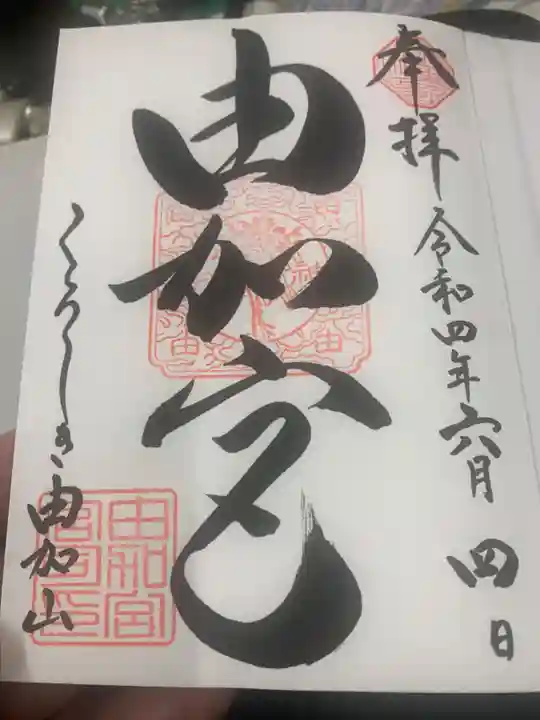 奉拝
令和四年六月四日
由加宮
くらしき
由加山
由加宮